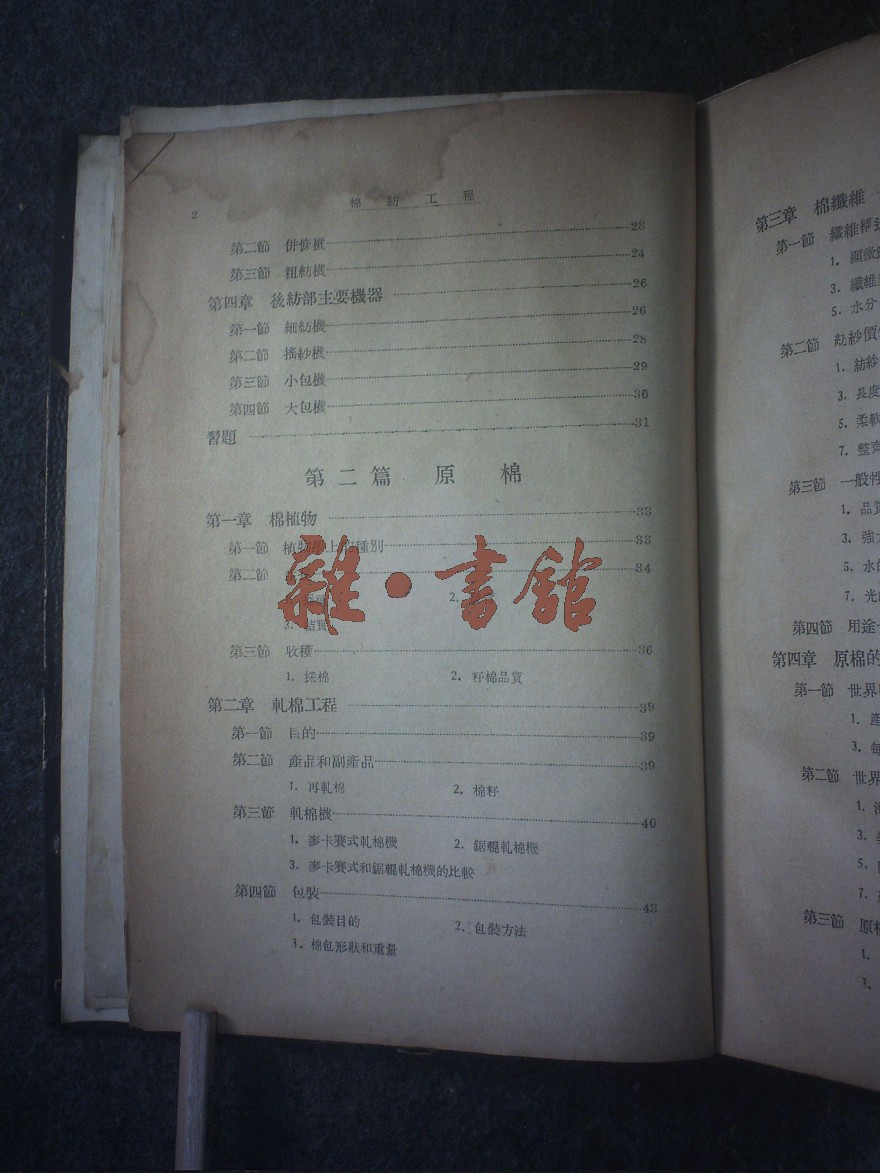 棉紡工程
2
第二節 併條機 23
第三節 粗紡機 24
第四章 後紡部主要機器 26
第一節 細紡機 26
第二節 搖紗機 28
第三節 小包機 29
第四節 大包機 30
習題 31
第二篇 原棉
第一章 棉植物 33
第一節 植物學上的種別 33
第二節 34
2.
3. 結實
雜·書館
第三節 收穫 36
1. 採棉 2. 籽棉品質
第二章 軋棉工程 39
第一節 目的 39
第二節 產品和副產品 39
1. 再軋棉 2. 棉籽
第三節 軋棉機 40
1. 麥卡賽式軋棉機 2. 鋸輥軋棉機
3. 麥卡賽式和鋸輥軋棉機的比較
第四節 包裝 43
1. 包裝目的 2. 包裝方法
3. 棉包形狀和重量
第三章 棉纖維
第一節 纖維構造
1. 顯微鏡
3. 纖維
5. 水分
第二節 紡紗價
1. 紡紗
3. 長度
5. 柔軟
7. 整齊
第三節 一般性
1. 品質
3. 強力
5. 水的
7. 光的
第四節 用途
第四章 原棉的
第一節 世界
1. 產
3. 每
第二節 世界
1.
3.
5.
7.
第三節 原棉
1.
3.